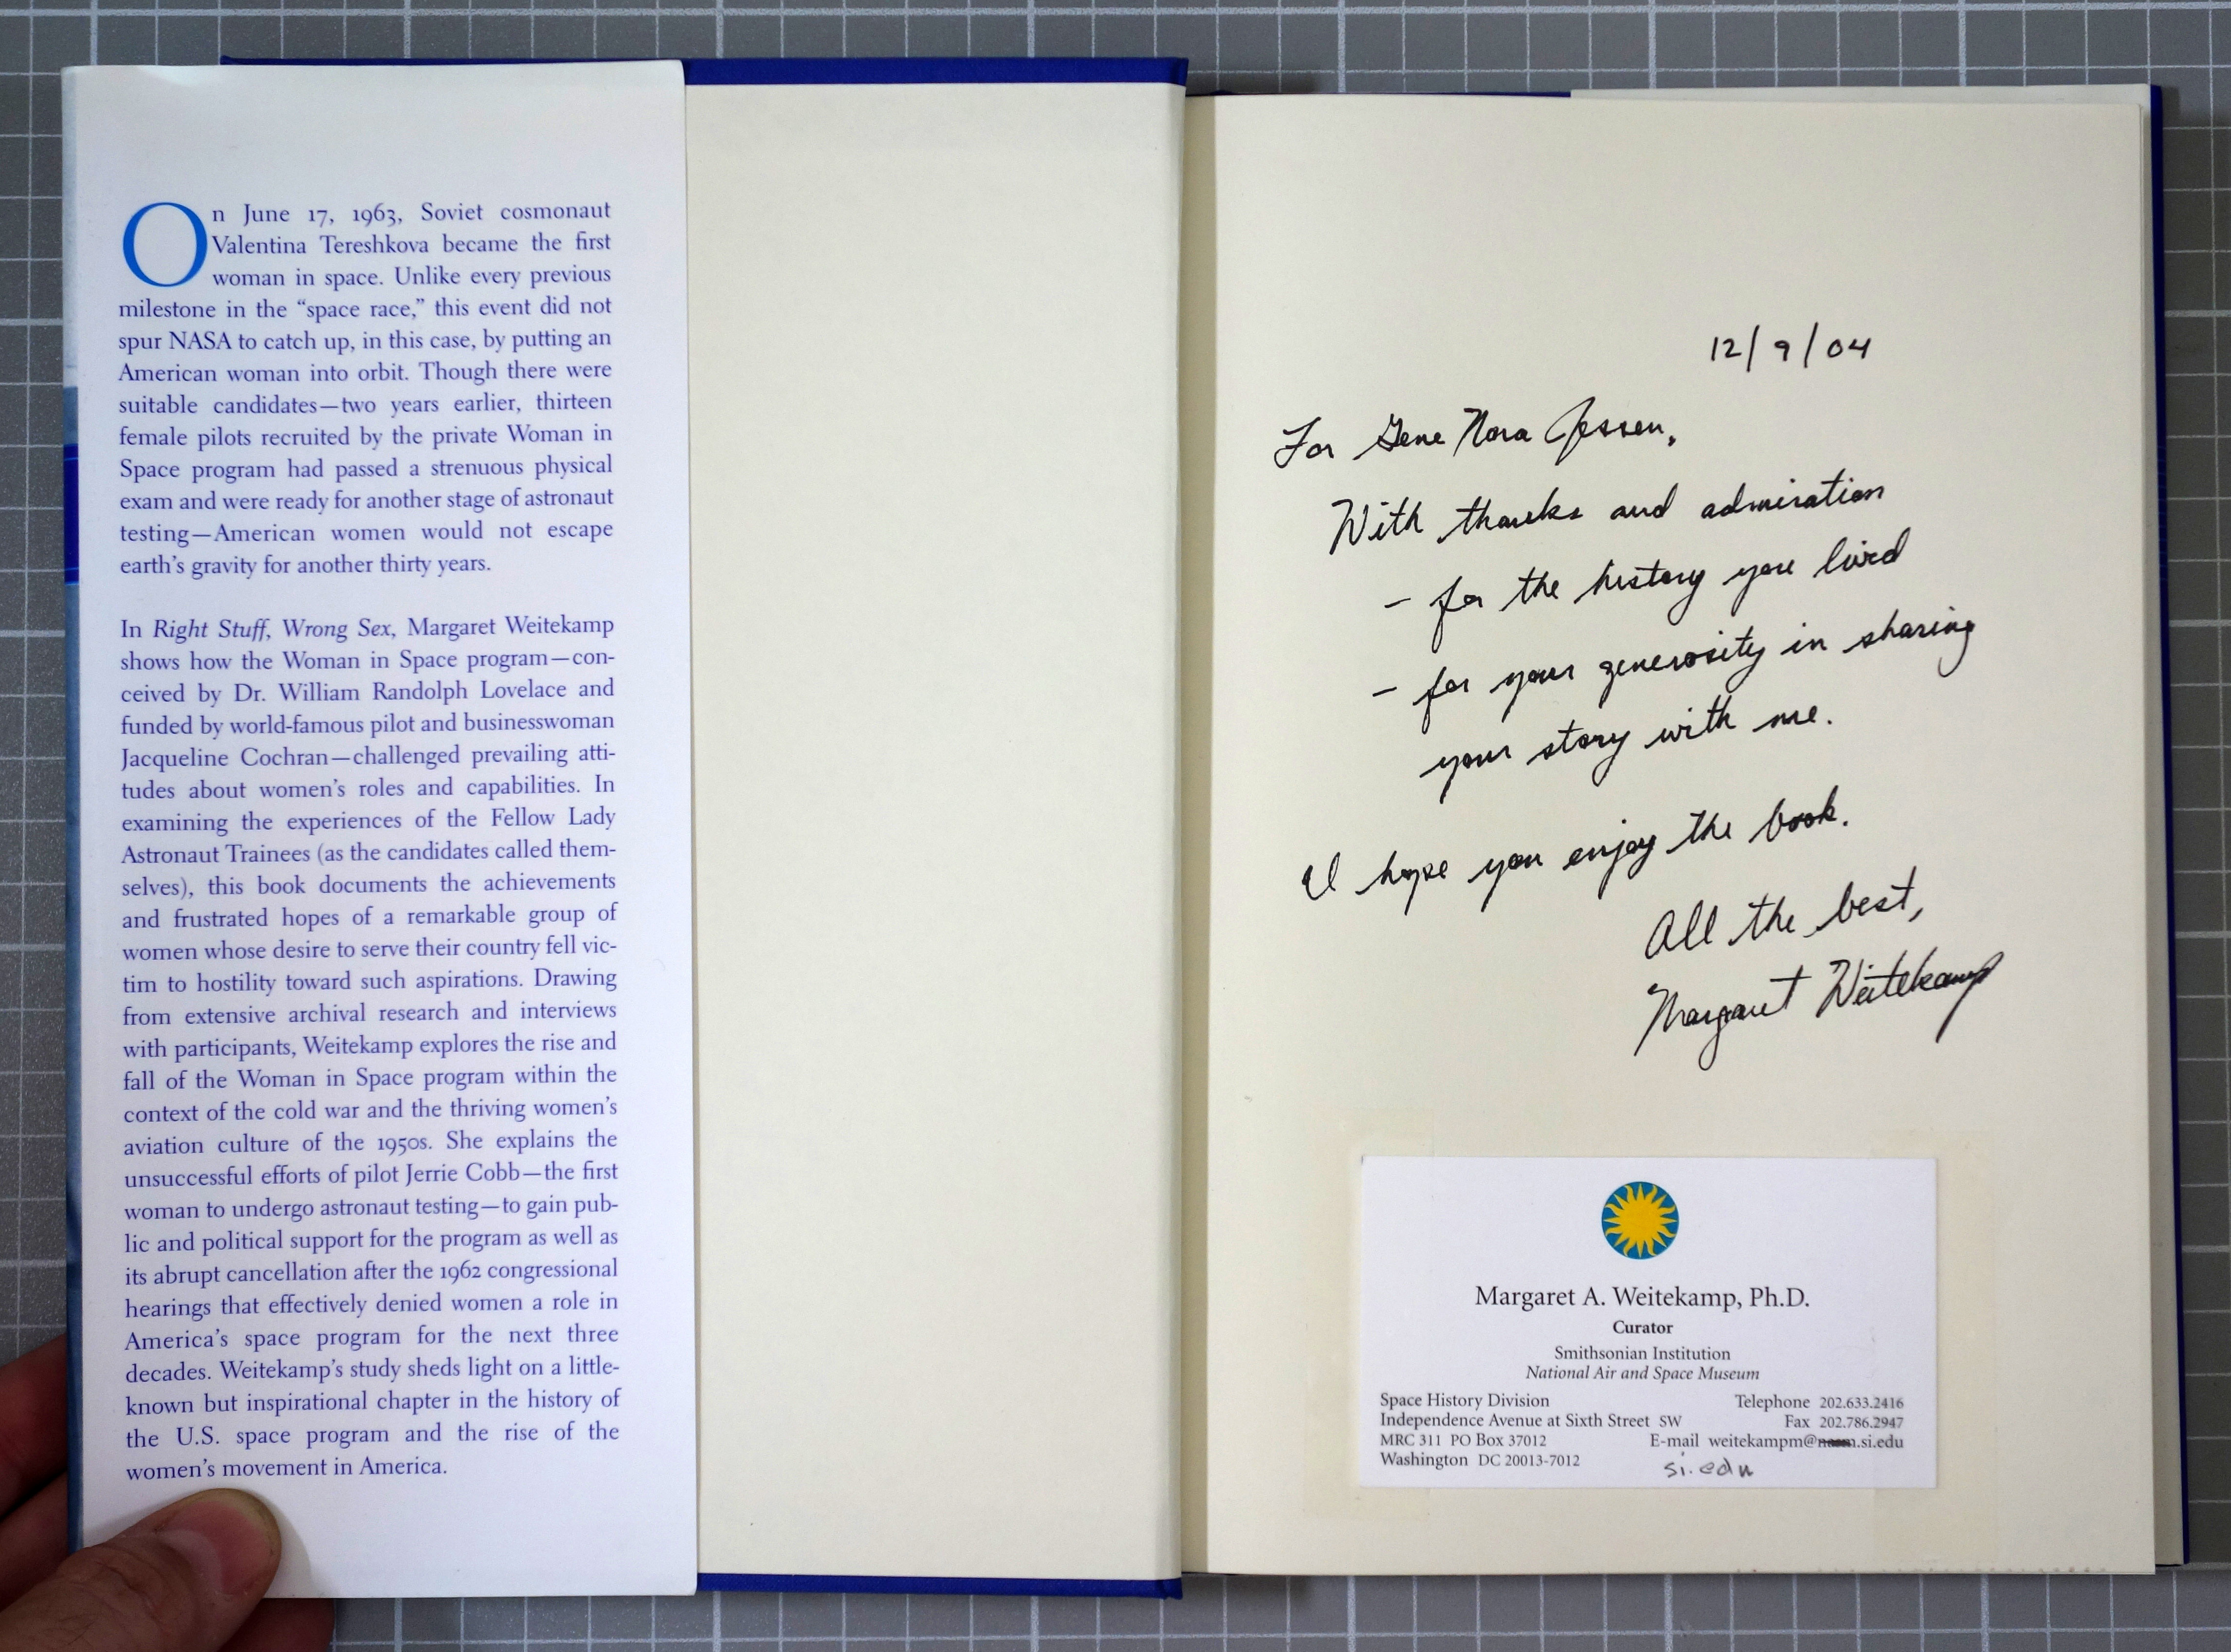 On June 17, 1963, Soviet cosmonaut
Valentina Tereshkova became the first
woman in space. Unlike every previous
milestone in the “space race,” this event did not
spur NASA to catch up, in this case, by putting an
American woman into orbit. Though there were
suitable candidates—two years earlier, thirteen
female pilots recruited by the private Woman in
Space program had passed a strenuous physical
exam and were ready for another stage of astronaut
testing—American women would not escape
earth’s gravity for another thirty years.
In Right Stuff, Wrong Sex, Margaret Weitekamp
shows how the Woman in Space program—con-
ceived by Dr. William Randolph Lovelace and
funded by world-famous pilot and businesswoman
Jacqueline Cochran—challenged prevailing atti-
tudes about women’s roles and capabilities. In
examining the experiences of the Fellow Lady
Astronaut Trainees (as the candidates called them-
selves), this book documents the achievements
and frustrated hopes of a remarkable group of
women whose desire to serve their country fell vic-
tim to hostility toward such aspirations. Drawing
from extensive archival research and interviews
with participants, Weitekamp explores the rise and
fall of the Woman in Space program within the
context of the cold war and the thriving women’s
aviation culture of the 1950s. She explains the
unsuccessful efforts of pilot Jerrie Cobb—the first
woman to undergo astronaut testing—to gain pub-
lic and political support for the program as well as
its abrupt cancellation after the 1962 congressional
hearings that effectively denied women a role in
America’s space program for the next three
decades. Weitekamp’s study sheds light on a little-
known but inspirational chapter in the history of
the U.S. space program and the rise of the
women’s movement in America.
12/9/04
For Gene Nora Jessen,
With thanks and admiration
- for the history you lived
- for your generosity in sharing
your story with me.
I hope you enjoy the book.
All the best,
Margaret Weitekamp
Margaret A. Weitekamp, Ph.D.
Curator
Smithsonian Institution
National Air and Space Museum
Space History Division
Independence Avenue at Sixth Street SW
MRC 311 PO Box 37012
Washington DC 20013-7012
Telephone 202.633.2416
Fax 202.786.2947
E-mail weitekampm@nasm.si.edu
si.edu